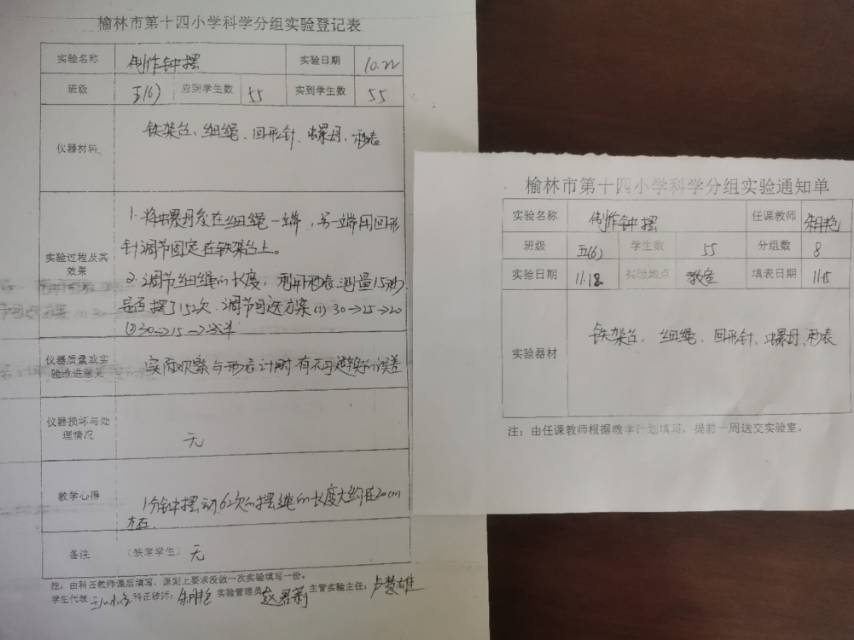 榆林市第十四小学科学分组实验登记表
实验名称 制作钟摆 实验日期 10.22
班级 五(6) 应到学生数 55 实到学生数 55
仪器材料 铁架台、细绳、回形针、螺母、秒表
实验过程及其效果
1. 将螺母系在细绳一端，另一端用回形
针调节固定在铁架台上。
2. 调节细绳的长度，利用秒表测量15秒，
是否摆了15次。调节可选方案(1) 30→25→20
(2) 30→15→
仪器质量或实验改进意见 实际观察与 计时有不可避免的误差
仪器损坏与处理情况 无
教学心得 1分钟摆动62次的摆绳的长度大约在20cm
左右
备注 (缺席学生) 无
注：由科任教师课后填写，原则上要求没做一次实验填写一份。
学生代表： 科任教师： 实验管理员： 主管实验主任：
榆林市第十四小学科学分组实验通知单
实验名称 制作钟摆 任课教师
班级 五(6) 学生数 55 分组数 8
实验日期 11.18 实验地点 教室 填表日期 11.15
实验器材 铁架台、细绳、回形针、螺母、秒表
注：由任课教师根据教学计划填写，提前一周送交实验室。